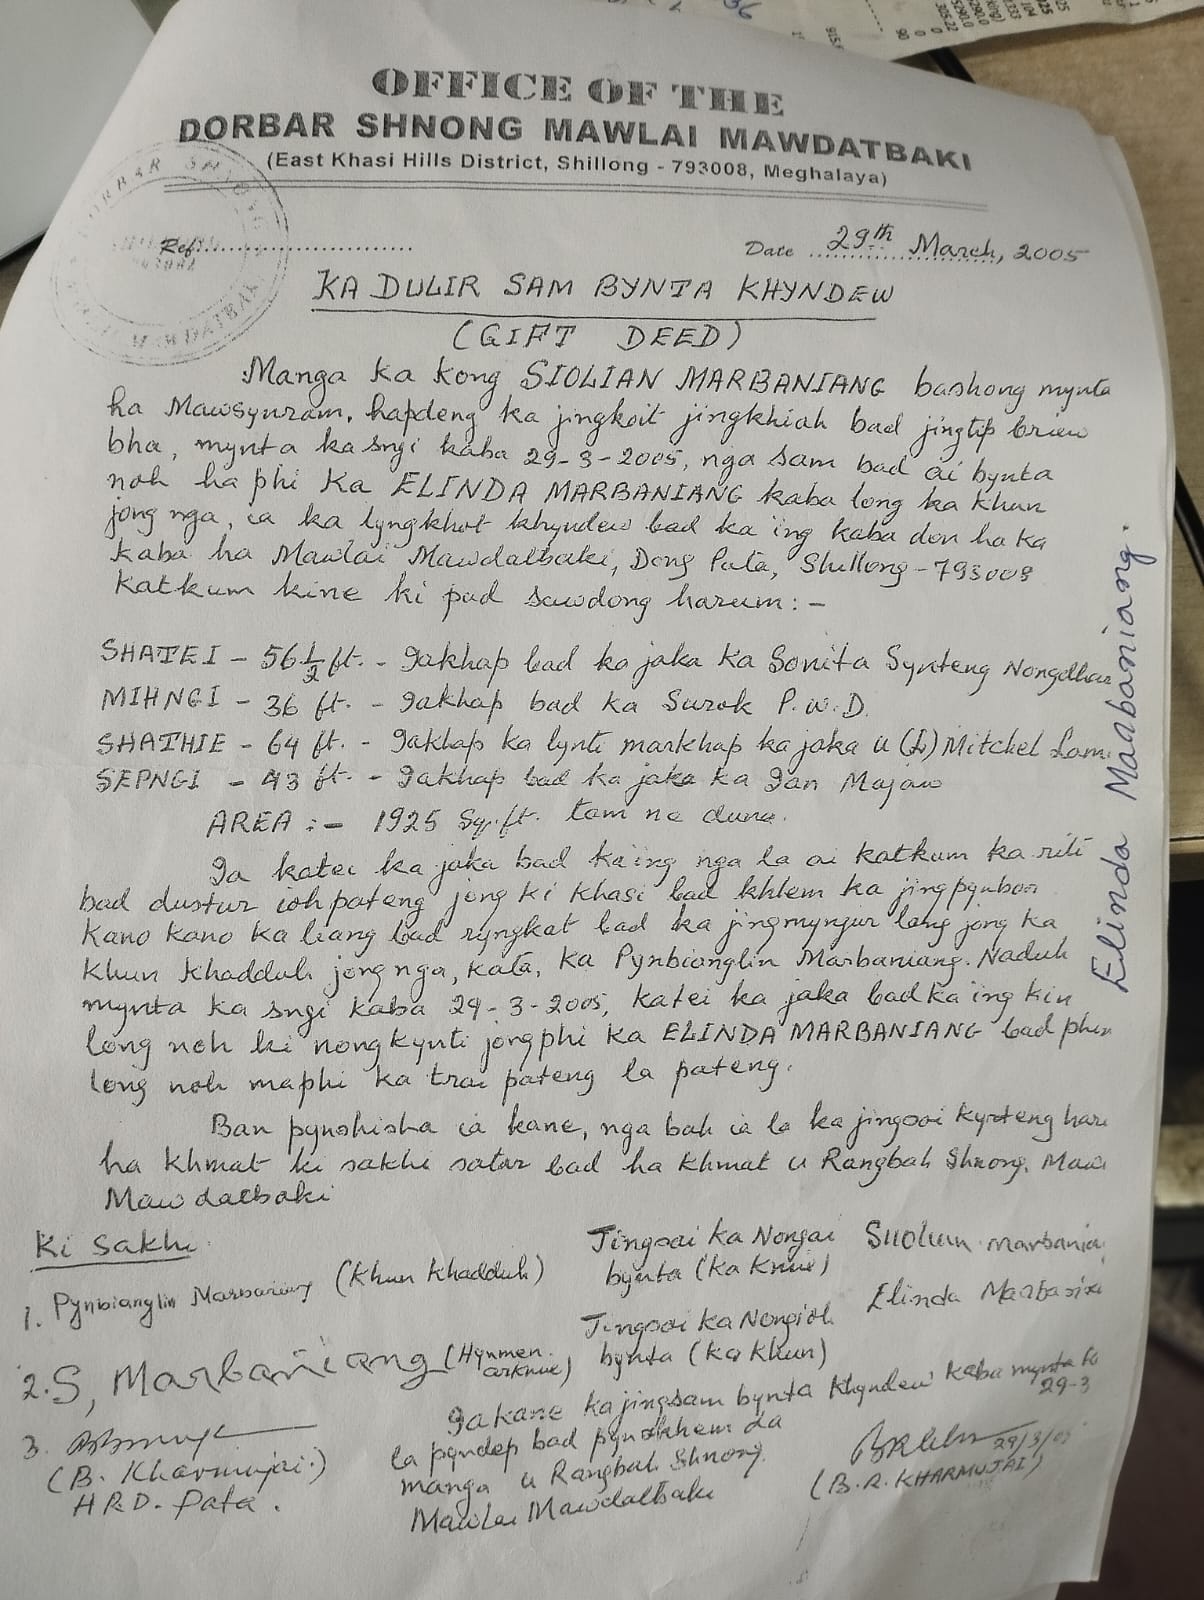 OFFICE OF THE
DORBAR SHNONG MAWLAI MAWDATBAKI
(East Khasi Hills District, Shillong - 793008, Meghalaya)
Ref:.......................... Date 29th March, 2005
KA DULIR SAM BYNTA KHYNDEW
(GIFT DEED)
Manga ka kong SIOLIAN MARBANIANG bashong mynta
ha Mawsynram, hapdeng ka jingkoit jingkhiah bad jingtip briew
bha, mynta ka sngi kaba 29-3-2005, nga sam bad ai bynta
noh ha phi Ka ELINDA MARBANIANG kaba long ka khun
jong nga, ia ka lyngkhot khyndew bad ka ïng kaba don ha ka
kaba ha Mawlai Mawdatbaki, Dong Pata, Shillong - 793008
katkum kine ki pud sawdong harum :-
SHATEI - 56 1/2 ft. - Iakhap bad ka jaka Ka Sonita Synteng Nongdhar
MIHNGI - 36 ft. - Iakhap bad ka Surok P.W.D.
SHATHIE - 64 ft. - Iakhap ka lynti markhap ka jaka u (L) Mitchel Lam
SEPNGI - 43 ft. - Iakhap bad ka jaka ka Ian Majaw
AREA :- 1925 Sq. ft. tam ne duna.
Ia katei ka jaka bad ka ïng nga la ai katkum ka riti
bad dustur ioh pateng jong ki Khasi bad khlem ka jingpynbor
kano kano ka liang bad ryngkat bad ka jingmynjur lang jong ka
khun khadduh jong nga, kata, ka Pynbianglin Marbaniang. Naduh
mynta ka sngi kaba 29-3-2005, katei ka jaka bad ka ïng kin
long noh ki nongkynti jong phi ka ELINDA MARBANIANG bad phin
long noh maphi ka trai pateng la pateng.
Ban pynshisha ia kane, nga buh ia la ka jingsoi kyrteng har
ha khmat ki sakhi satar bad ha khmat u Rangbah Shnong, Maw
Mawdatbaki
Ki Sakhi
Jingsoi ka Nongai Siolian Marbania
bynta (ka Kmie)
1. Pynbianglin Marbaniang (Khun Khadduh)
Jingsoi ka Nongioh Elinda Marbania
bynta (ka Khun)
2. S, Marbaniang (Hynmen arkmie)
3.
(B. Kharmujai.)
H.R.D. Pata.
Ia kane ka jingsam bynta khyndew kaba mynta
29-3
la pyndep bad pynskhem da
manga u Rangbah Shnong
Mawlai Mawdatbaki
29/3/05
(B.R. KHARMUJAI)
Elinda Marbaniang.